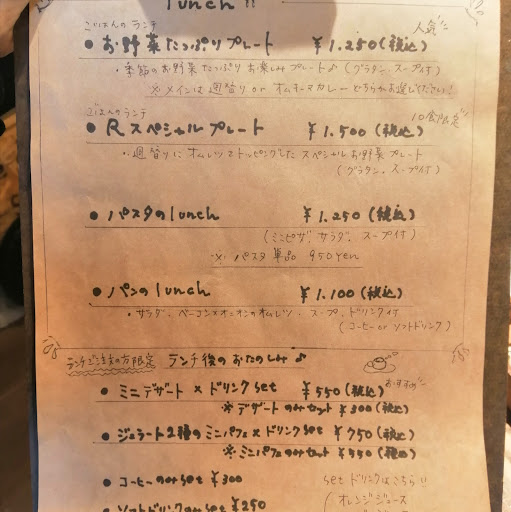 lunch !!
ごはんのランチ 人気
● お野菜たっぷりプレート ¥1.250(税込)
・季節のお野菜たっぷりお楽しみプレート♪(グラタン、スープ付)
※メインは週替り or オムキーマカレーどちらかお選びください!
ごはんのランチ 10食限定
● Rスペシャルプレート ¥1.500(税込)
・週替りにオムレツをトッピングしたスペシャルお野菜プレート
(グラタン、スープ付)
● パスタのlunch ¥1.250(税込)
(ミニピザ、サラダ、スープ付)
※パスタ単品 950yen
● パンのlunch ¥1.100(税込)
・サラダ、ベーコン×オニオンのオムレツ、スープ、ドリンク付
(コーヒー or ソフトドリンク)
ランチご注文の方限定 ランチ後のおたのしみ♪
おすすめ
● ミニデザート×ドリンクset ¥550(税込)
※デザートのみセット¥300(税込)
● ジェラート2種のミニパフェ×ドリンクset ¥750(税込)
※ミニパフェのみセット¥550(税込)
● コーヒーのみset ¥300
setドリンクはこちら!!
● ソフトドリンクのみset ¥250
(オレンジジュース